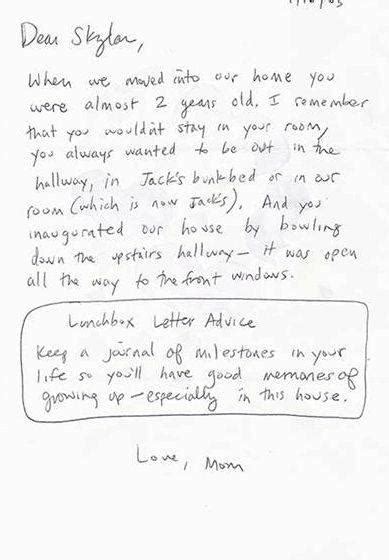 Dear Skylar,
When we moved into our home you
were almost 2 years old. I remember
that you wouldn't stay in your room,
you always wanted to be out in the
hallway, in Jack's bunkbed or in our
room (which is now Jack's). And you
inaugurated our house by bowling
down the upstairs hallway — it was open
all the way to the front windows.
Lunchbox Letter Advice
Keep a journal of milestones in your
life so you'll have good memories of
growing up — especially in this house.
Love, Mom